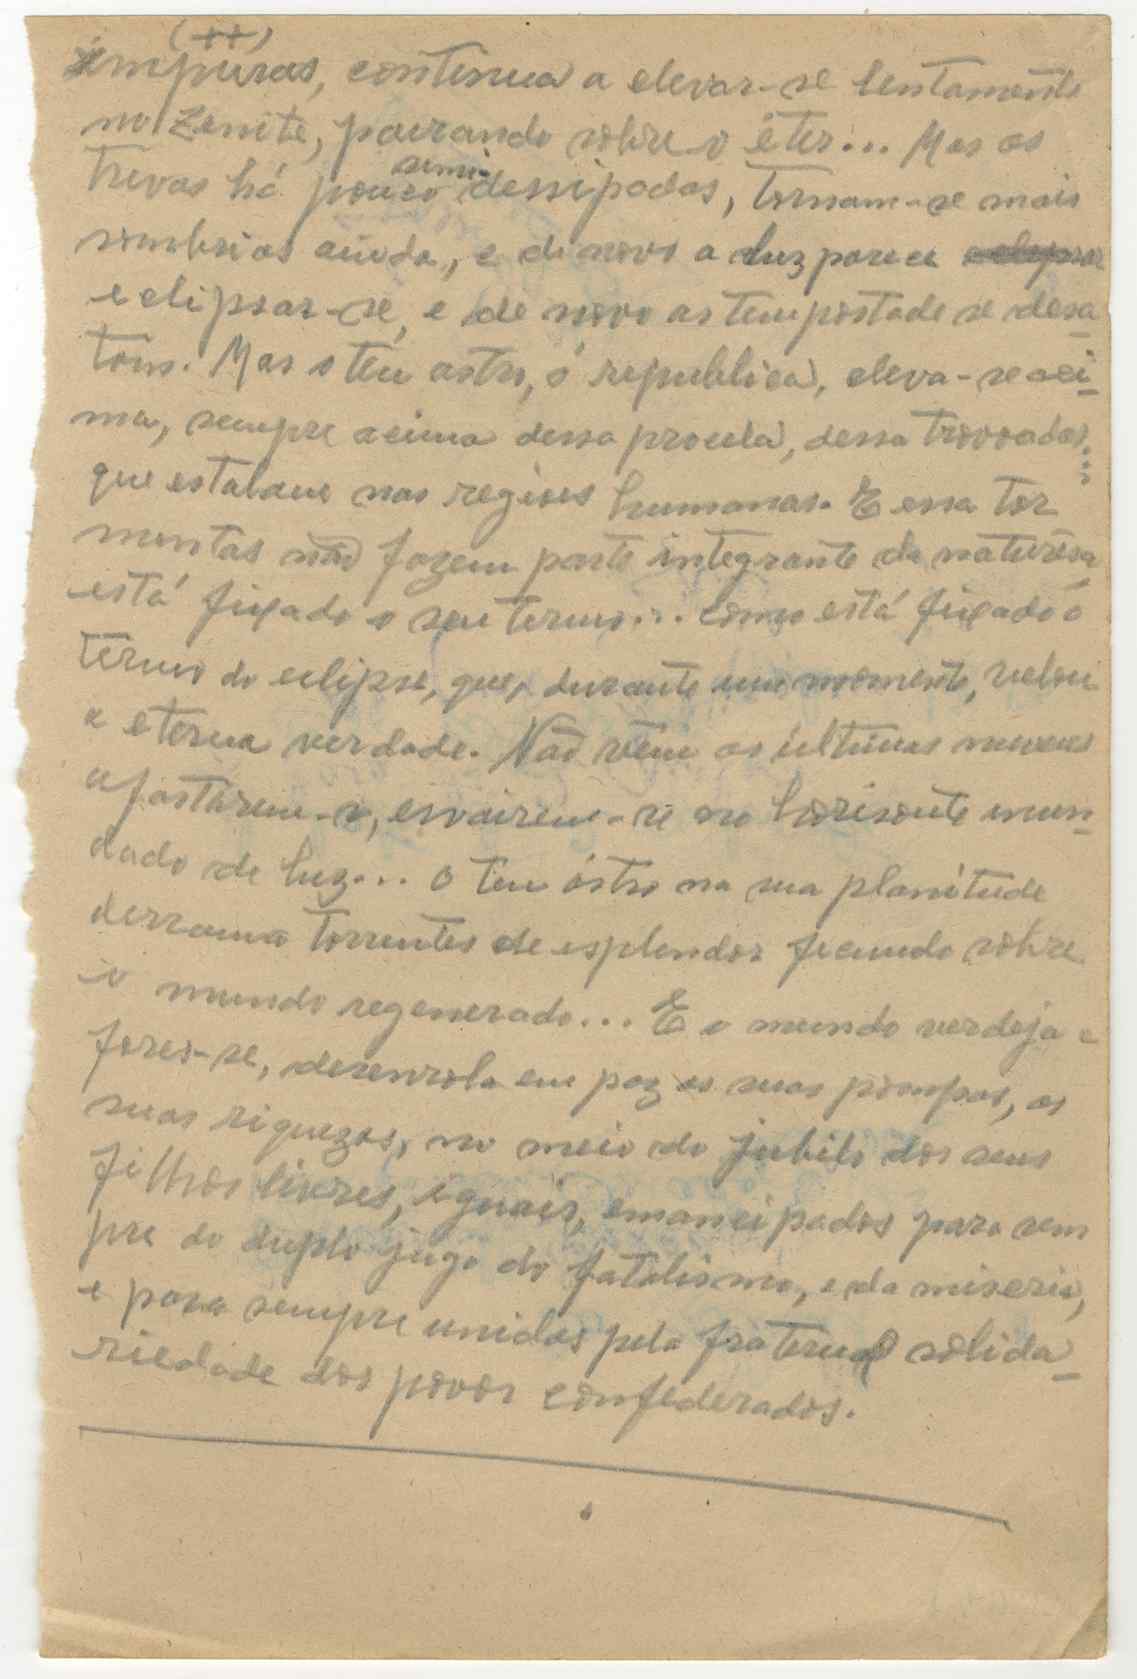 (++)
impuras, continua a elevar-se lentamente
no Zenite, pairando sobre o éter... Mas as
trevas há pouco semi-dessipadas, tornam-se mais
sombrias ainda, e de novo a luz parece
eclipsar-se, e de novo as tempestade se desa-
tam. Mas o teu astro, ó republica, eleva-se aci-
ma, sempre acima dessa procela, dessa trovoadas,
que estalam nas regiões humanas. E essa tor
mentas não fazem parte integrante da naturêsa,
está fixado o seu termo... como está fixado o
termo do eclipse, que, durante um momento, velou
a eterna verdade. Não vêm as últimas nuvens
afastarem-se, esvairem-se no horisonte inun-
dado de luz... O teu astro na sua planitude
derrama torrentes de esplendor fecundo sobre
o mundo regenerado... E o mundo verdeja e
flores-se, desenrola em paz as suas pompas, as
suas riquezas, no meio do jubilo dos seus
filhos livres, iguais, emancipados para sem
pre do duplo jugo do fatalismo, e da miseria,
e para sempre unidos pela fraternal solida-
riedade dos povos confederados.